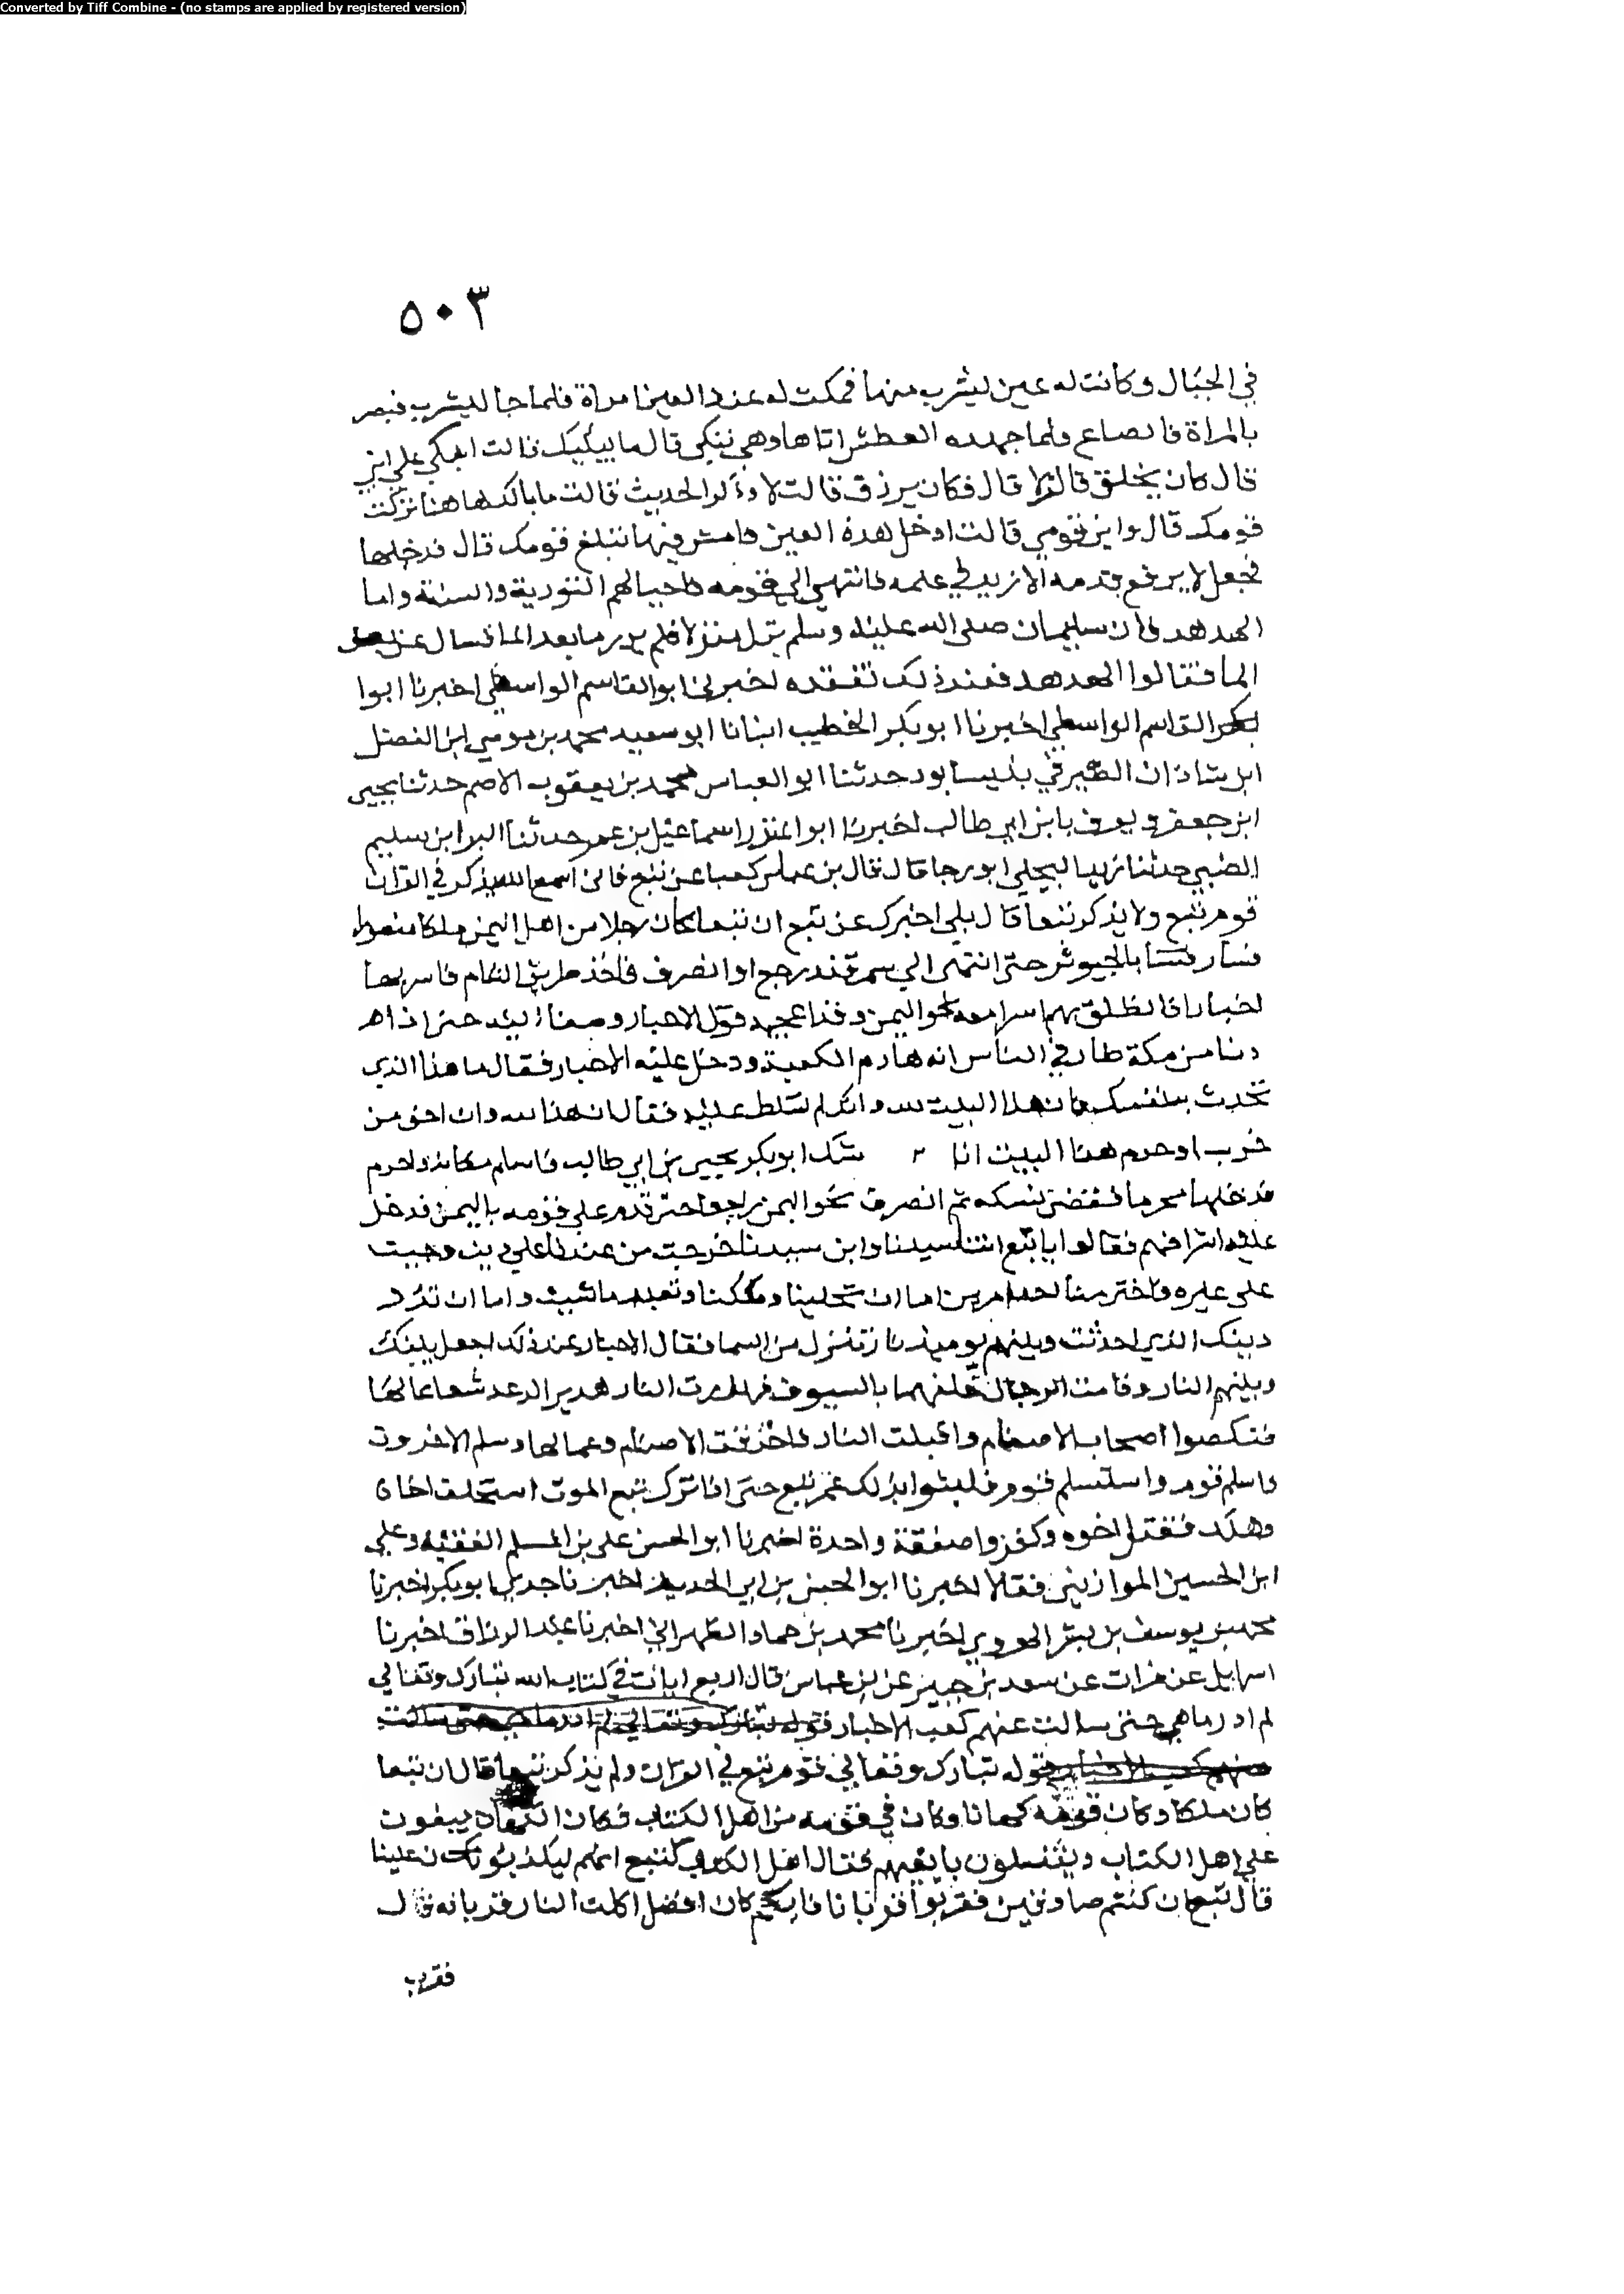 Converted by Tiff Combine - (no stamps are applied by registered version)
٥٠٣
في الجبال وكانت له عين ليشرب منها فمكت له عند العين امراة فلما جا ليشرب فبصر
بالمراة فانصاع فلما جهده العطش اتاها وهي تبكي قال ما يبكيك قالت ابكي على ابني
قال كان يخلق قالت لا قال فكان يرزق قالت لا وذكر الحديث قالت ما بالك هاهنا تركت
قومك قال واين قومي قالت ادخل هذه العين فامش فيها تبلغ قومك قال فدخلها
فجعل لا يرفع قدمه الا زيد في علمه فانتهى الى قومه فاحيا لهم التورية والسنة واما
الهدهد فان سليمان صلى الله عليه وسلم نزل منزلا فلم يدر ما بعد الما فسال عن بعد
الما فقالوا الهدهد فعند ذلك تفقده اخبرنا ابو القاسم الواسطي اخبرنا ابوا
القاسم الواسطي اخبرنا ابو بكر الخطيب انبانا ابو سعيد محمد بن موسى ابن الفضل
ابن شاذان الصيرفي بنيسابور حدثنا ابو العباس محمد بن يعقوب الاصم حدثنا يحيى
ابن جعفر ويعرف بابن ابي طالب اخبرنا ابو المنذر اسماعيل بن عمر حدثنا البرا ابن سليم
الضبي حدثنا البجلي ابو رجا قال قال بن عباس كعبا عن تبع فاني اسمع الله يذكر في القران
قوم تبع ولا يذكر تبعا قال بلى اخبرك عن تبع ان تبعا كان رجلا من اهل اليمن ملكا منصورا
فسار بالجيوش حتى انتهى الى سمرقند رجع او انصرف فاخذ طريق الشام فاسر بها
احبارا فانطلق بهم اسرا معه نحو اليمن وقد اعجبه قول الاحبار وصفا اليه حتى اذا هو
دنا من مكة طار في الناس انه هادم الكعبة ودخل عليه الاحبار فقال ما هذا الذي
تحدث بنفسك فان هذا البيت لله وانك لم تسلط عليه فقال ان هذا لله وان احق من
خرب او حرم هذا البيت انا ٢ شك ابو بكر يحيى بن ابي طالب فاسلم مكانه واحرم
فدخلها محرما فقضى نسكه ثم انصرف نحو اليمن راجعا حتى قدم على قومه باليمن فدخل
عليه اشرافهم فقالوا يا تبع انت سيدنا وابن سيدنا خرجت من عندنا على دين وجيت
على غيره فاختر منا احد امرين اما ان تخلينا وملكنا وتعبد ما شيت واما ان تذر
دينك الذي احدثت وبينهم يوميذ نار تنزل من السما فقال الاحبار عند ذلك اجعل بينك
وبينهم النار وقامت الرجال خلفهما بالسيوف فهدرت النار هدير الرعد شعاعا لها
فنكصوا اصحاب الاصنام واقبلت النار فاحرقت الاصنام وعمالها وسلم الاخرون
فاسلم قوم واستسلم قوم فلبثوا بذلك عمر تبع حتى اذا ترك تبع الموت استخلف اخاه
وهلك فقتل اخوه وكفروا صفقة واحدة اخبرنا ابو الحسن علي بن المسلم الفقيه وعلي
ابن الحسين الموازيني فقالا اخبرنا ابو الحسن بن ابي الحديد اخبرنا جدي ابو بكر اخبرنا
محمد بن يوسف بن بشر الهروي اخبرنا محمد بن حماد الطهراني اخبرنا عبد الرزاق اخبرنا
اسرايل عن فرات عن سعد بن جبير عن ابن عباس قال اربع ايات في كتاب الله تبارك وتعالى
لم ادر ما هي حتى سالت عنهم كعب الاحبار قوله تبارك وتعالى لم ادر ما هي حتى سالت
عنهم كعب الاحبار قوله تبارك وتعالى قوم تبع في القران ولم يذكر تبعا قال ان تبعا
كان ملكا وكان قومه كهانا وكان في قومه من اهل الكتاب فكان الكهان يبغون
على اهل الكتاب ويقتلون فقال اهل الكتاب لتبع انهم ليكذبون علينا
قال تبع ان كنتم صادقين فقربوا قربانا فايكم كان افضل اكلت النار قربانه قال
فقرب